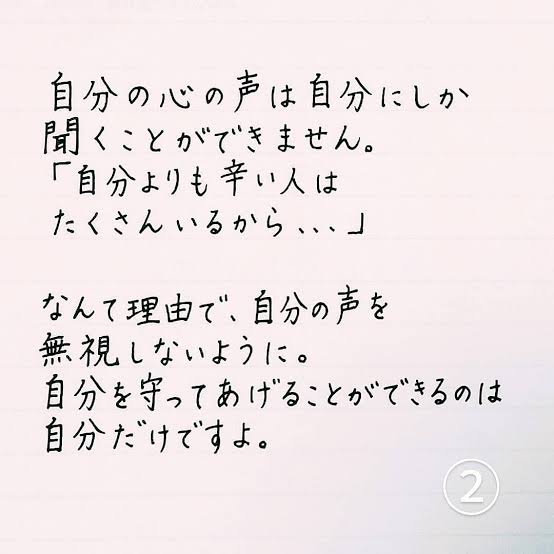 自分の心の声は自分にしか
聞くことができません。
「自分よりも辛い人は
たくさんいるから...」
なんて理由で、自分の声を
無視しないように。
自分を守ってあげることができるのは
自分だけですよ。
②